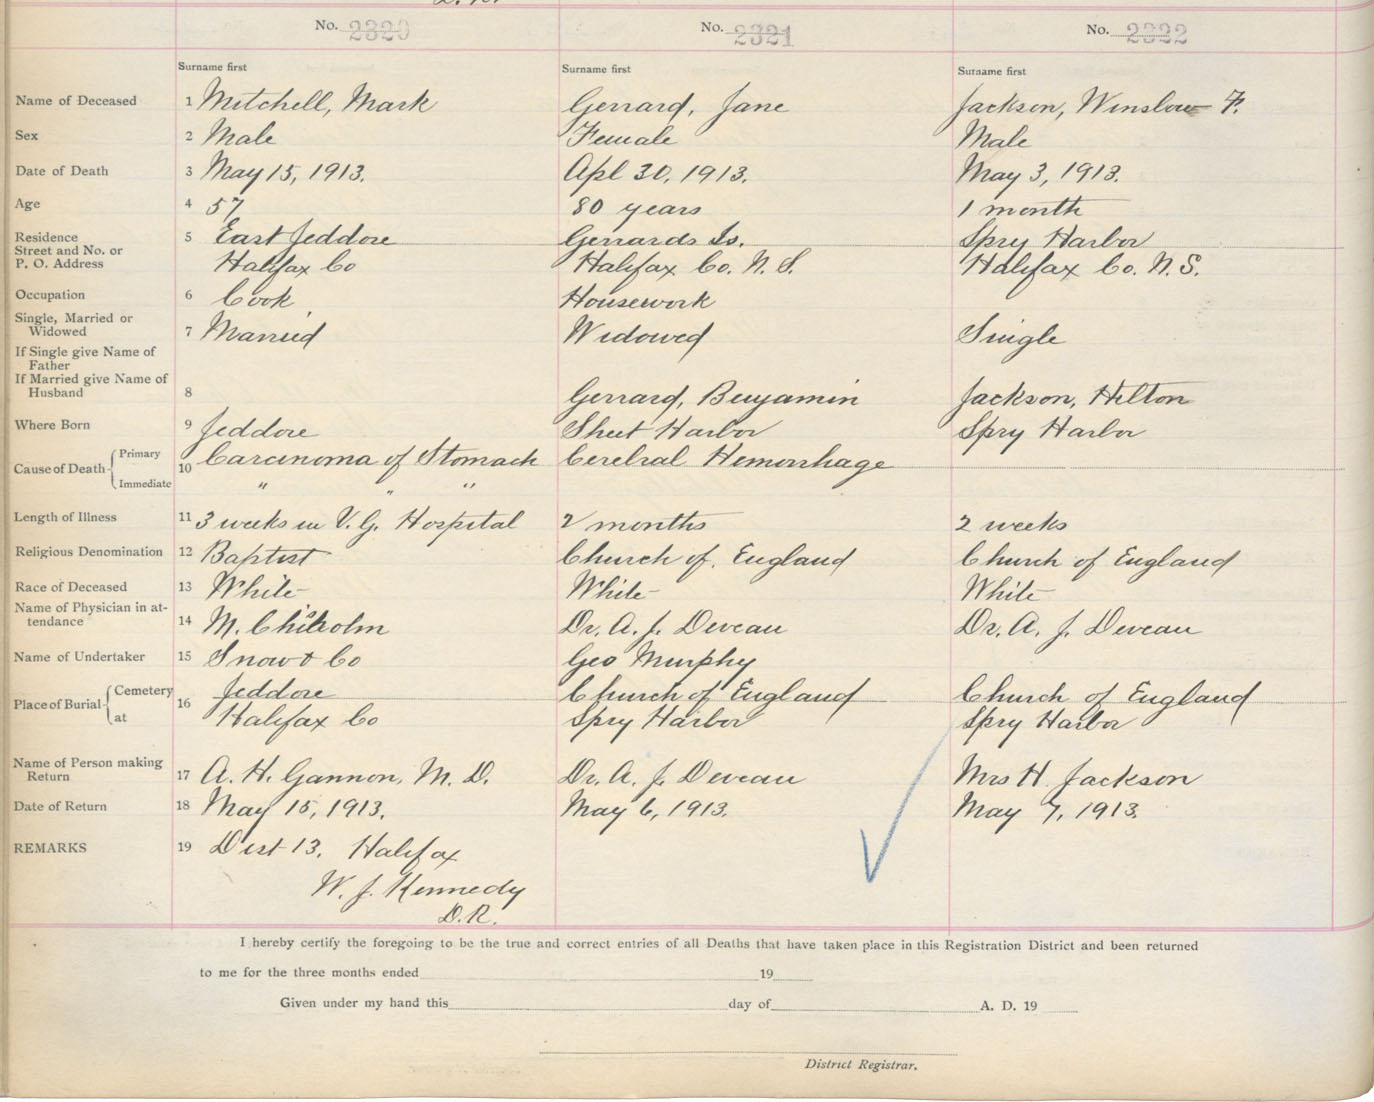 No. 2320 No. 2321 No. 2322
Surname first Surname first Surname first
Name of Deceased 1 Mitchell, Mark Gerrard, Jane Jackson, Winslow F.
Sex 2 Male Female Male
Date of Death 3 May 15, 1913. Apl 30, 1913. May 3, 1913.
Age 4 57 80 years 1 month
Residence 5 East Jeddore Gerrards Is. Spry Harbor
Street and No. or
P. O. Address Halifax Co Halifax Co. N. S. Halifax Co. N. S.
Occupation 6 Cook Housework
Single, Married or
Widowed 7 Married Widowed Single
If Single give Name of
Father
If Married give Name of
Husband 8 Gerrard, Benjamin Jackson, Hilton
Where Born 9 Jeddore Sheet Harbor Spry Harbor
Cause of Death Primary 10 Carcinoma of Stomach Cerebral Hemorrhage
Immediate " " "
Length of Illness 11 3 weeks in V. G. Hospital 2 months 2 weeks
Religious Denomination 12 Baptist Church of England Church of England
Race of Deceased 13 White White White
Name of Physician in at-
tendance 14 M. Chisholm Dr. A. J. Deveau Dr. A. J. Deveau
Name of Undertaker 15 Snow & Co Geo Murphy
Place of Burial Cemetery 16 Jeddore Church of England Church of England
at Halifax Co Spry Harbor Spry Harbor
Name of Person making
Return 17 A. H. Gannon, M. D. Dr. A. J. Deveau Mrs H. Jackson
Date of Return 18 May 15, 1913. May 6, 1913. May 7, 1913.
REMARKS 19 Dist 13, Halifax
W. J. Kennedy
D.R.
I hereby certify the foregoing to be the true and correct entries of all Deaths that have taken place in this Registration District and been returned
to me for the three months ended 19
Given under my hand this day of A. D. 19
District Registrar.